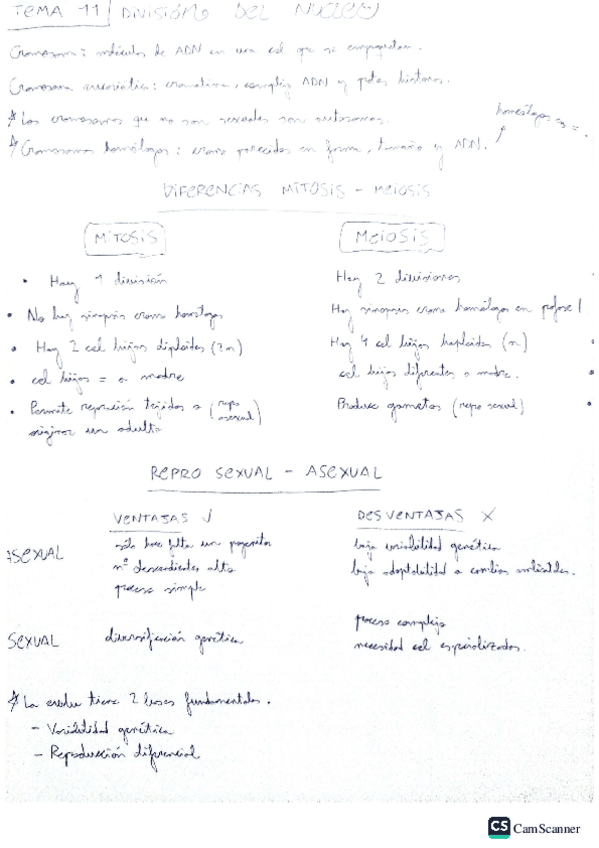 TEMA 11 DIVISIÓN DEL NUCLEO
Cromosoma: molécula de ADN en una cel que se empaquetan.
Cromosoma eucariótico: cromatina, complejo ADN y histonas.
* Los cromosomas que no son sexuales son autosomas.
homólogos
* Cromosomas homólogos: croms parecidos en forma, tamaño y ADN.
DIFERENCIAS MITOSIS - MEIOSIS
MITOSIS
MEIOSIS
• Hay 1 división
Hay 2 divisiones
• No hay sinapsis croms homólogos
Hay sinapsis croms homólogos en profase I
• Hay 2 cel hijas diploides (2n)
Hay 4 cel hijas haploides (n)
• cel hijas = a madre
cel hijas diferentes a madre.
• Permite tejidos o (repro asexual)
originar un adulto
Produce gametos (repro sexual)
REPRO SEXUAL - ASEXUAL
VENTAJAS ✓
DESVENTAJAS X
ASEXUAL
sólo hace falta un progenitor
nº descendientes alto
proceso simple
baja variabilidad genética
baja adaptabilidad a cambios ambientales.
SEXUAL
diversificación genética
proceso complejo
necesidad cel especializadas.
* La tiene 2 bases fundamentales.
- Variabilidad genética
- Reproducción diferencial
CS CamScanner